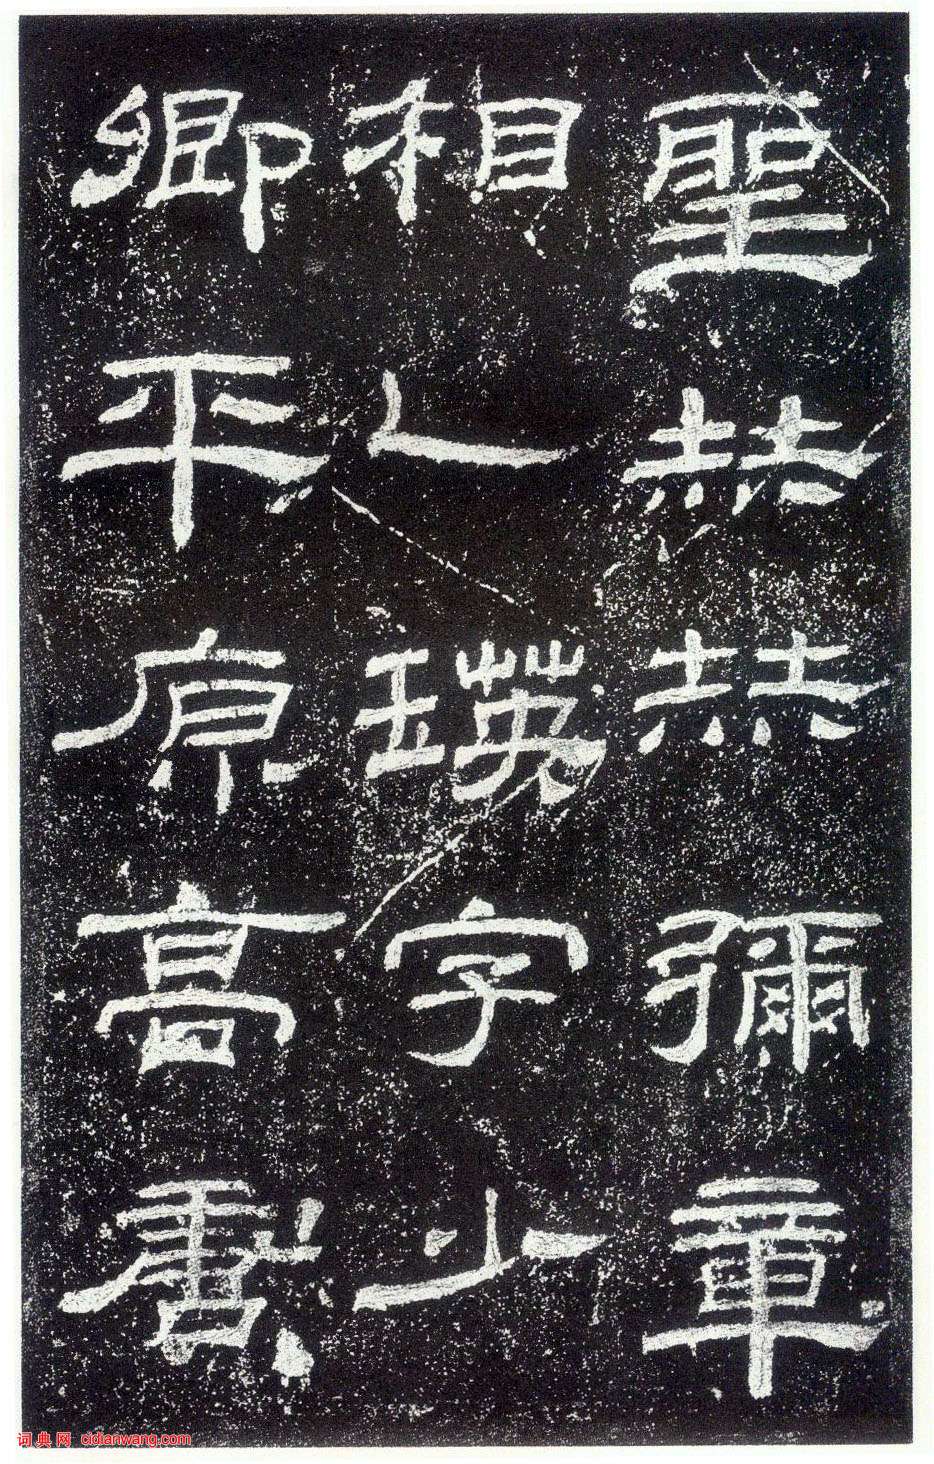 聖赫赫彌章
相乙瑛字少
卿平原高唐
词典网 cidianwang.com